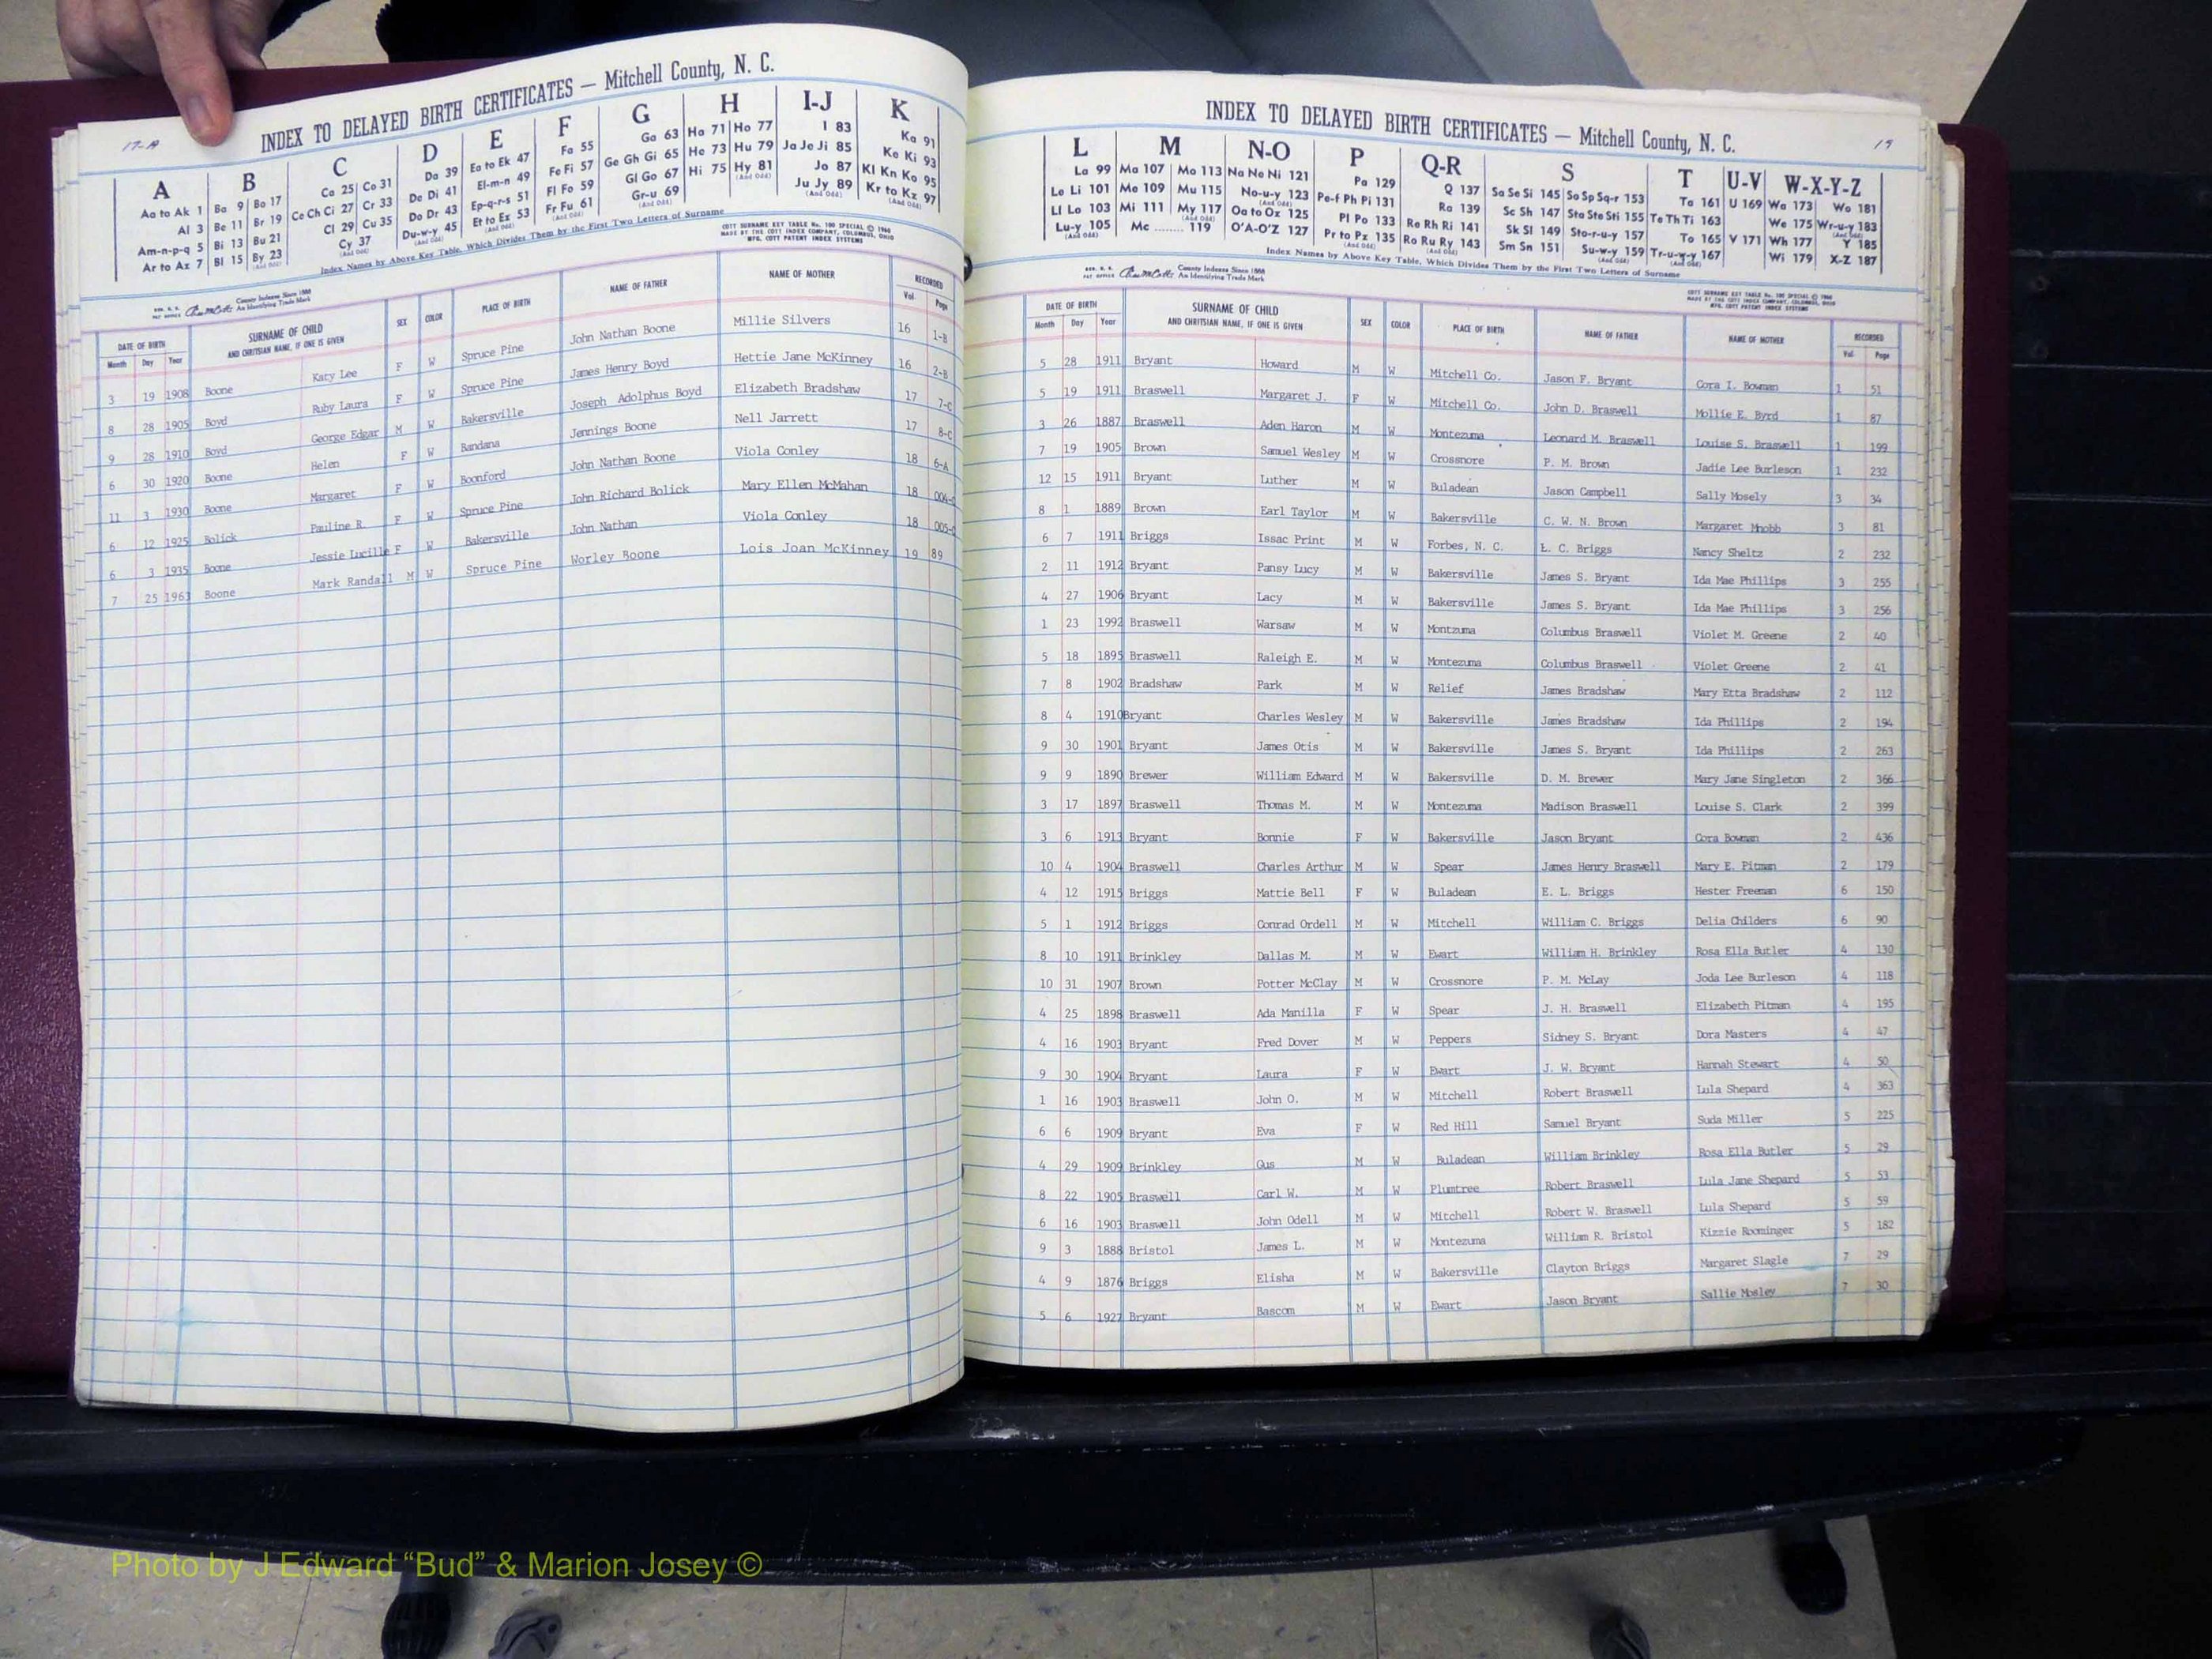 17-A
INDEX TO DELAYED BIRTH CERTIFICATES — Mitchell County, N. C.
A B C D E F G H I-J K
Aa to Ak 1 Ba 9 Bo 17 Ca 25 Co 31 Da 39 Ea to Ek 47 Fa 55 Ga 63 Ha 71 Ho 77 I 83 Ka 91
Al 3 Be 11 Br 19 Ce Ch Ci 27 Cr 33 De Di 41 El-m-n 49 Fe Fi 57 Ge Gh Gi 65 He 73 Hu 79 Ja Je Ji 85 Ke Ki 93
Am-n-p-q 5 Bi 13 Bu 21 Cl 29 Cu 35 Do Dr 43 Ep-q-r-s 51 Fl Fo 59 Gl Go 67 Hi 75 Hy 81 Jo 87 Kl Kn Ko 95
Ar to Az 7 Bl 15 By 23 Cy 37 Du-w-y 45 Et to Ez 53 Fr Fu 61 Gr-u 69 Ju Jy 89 Kr to Kz 97
Index Names by Above Key Table, Which Divides Them by the First Two Letters of Surname
COTT SURNAME KEY TABLE No. 100 SPECIAL © 1960
MADE BY THE COTT INDEX COMPANY, COLUMBUS, OHIO
MFG. COTT PATENT INDEX SYSTEMS
County Indexes Since 1888
An Identifying Trade Mark
DATE OF BIRTH SURNAME OF CHILD SEX COLOR PLACE OF BIRTH NAME OF FATHER NAME OF MOTHER RECORDED
Month Day Year AND CHRITSIAN NAME, IF ONE IS GIVEN Vol. Page
3 19 1908 Boone Katy Lee F W Spruce Pine John Nathan Boone Millie Silvers 16 1-B
8 28 1905 Boyd Ruby Laura F W Spruce Pine James Henry Boyd Hettie Jane McKinney 16 2-B
9 28 1910 Boyd George Edgar M W Bakersville Joseph Adolphus Boyd Elizabeth Bradshaw 17 7-C
6 30 1920 Boone Helen F W Bandana Jennings Boone Nell Jarrett 17 8-C
11 3 1930 Boone Margaret F W Boonford John Nathan Boone Viola Conley 18 6-A
6 12 1925 Bolick Pauline R. F W Spruce Pine John Richard Bolick Mary Ellen McMahan 18 004-
6 3 1935 Boone Jessie Lucille F W Bakersville John Nathan Viola Conley 18 005-
7 25 1961 Boone Mark Randall M W Spruce Pine Worley Boone Lois Joan McKinney 19 89
19
INDEX TO DELAYED BIRTH CERTIFICATES — Mitchell County, N. C.
L M N-O P Q-R S T U-V W-X-Y-Z
La 99 Ma 107 Mo 113 Na Ne Ni 121 Pa 129 Q 137 Sa Se Si 145 So Sp Sq-r 153 Ta 161 U 169 Wa 173 Wo 181
Le Li 101 Me 109 Mu 115 No-u-y 123 Pe-f Ph Pi 131 Ra 139 Sc Sh 147 Sta Ste Sti 155 Te Th Ti 163 We 175 Wr-u-y 183
Ll Lo 103 Mi 111 My 117 Oa to Ox 125 Pl Po 133 Re Rh Ri 141 Sk Sl 149 Sto-r-u-y 157 To 165 V 171 Wh 177 Y 185
Lu-y 105 Mc ........ 119 O'A-O'Z 127 Pr to Pz 135 Ro Ru Ry 143 Sm Sn 151 Su-w-y 159 Tr-u-w-y 167 Wi 179 X-Z 187
Index Names by Above Key Table, Which Divides Them by the First Two Letters of Surname
County Indexes Since 1888
An Identifying Trade Mark
COTT SURNAME KEY TABLE No. 100 SPECIAL © 1960
MADE BY THE COTT INDEX COMPANY, COLUMBUS, OHIO
MFG. COTT PATENT INDEX SYSTEMS
DATE OF BIRTH SURNAME OF CHILD SEX COLOR PLACE OF BIRTH NAME OF FATHER NAME OF MOTHER RECORDED
Month Day Year AND CHRITSIAN NAME, IF ONE IS GIVEN Vol. Page
5 28 1911 Bryant Howard M W Mitchell Co. Jason F. Bryant Cora I. Bowman 1 51
5 19 1911 Braswell Margaret J. F W Mitchell Co. John D. Braswell Mollie E. Byrd 1 87
3 26 1887 Braswell Aden Haron M W Montezuma Leonard M. Braswell Louise S. Braswell 1 199
7 19 1905 Brown Samuel Wesley M W Crossnore P. M. Brown Jadie Lee Burleson 1 232
12 15 1911 Bryant Luther M W Buladean Jason Campbell Sally Mosely 3 34
8 1 1889 Brown Earl Taylor M W Bakersville C. W. N. Brown Margaret Mnobb 3 81
6 7 1911 Briggs Issac Print M W Forbes, N. C. L. C. Briggs Nancy Sheltz 2 232
2 11 1912 Bryant Pansy Lucy M W Bakersville James S. Bryant Ida Mae Phillips 3 255
4 27 1906 Bryant Lacy M W Bakersville James S. Bryant Ida Mae Phillips 3 256
1 23 1992 Braswell Warsaw M W Montzuma Columbus Braswell Violet M. Greene 2 40
5 18 1895 Braswell Raleigh E. M W Montezuma Columbus Braswell Violet Greene 2 41
7 8 1902 Bradshaw Park M W Relief James Bradshaw Mary Etta Bradshaw 2 112
8 4 1910 Bryant Charles Wesley M W Bakersville James Bradshaw Ida Phillips 2 194
9 30 1901 Bryant James Otis M W Bakersville James S. Bryant Ida Phillips 2 263
9 9 1890 Brewer William Edward M W Bakersville D. M. Brewer Mary Jane Singleton 2 366
3 17 1897 Braswell Thomas M. M W Montezuma Madison Braswell Louise S. Clark 2 399
3 6 1913 Bryant Bonnie F W Bakersville Jason Bryant Cora Bowman 2 436
10 4 1904 Braswell Charles Arthur M W Spear James Henry Braswell Mary E. Pitman 2 179
4 12 1915 Briggs Mattie Bell F W Buladean E. L. Briggs Hester Freeman 6 150
5 1 1912 Briggs Conrad Ordell M W Mitchell William C. Briggs Delia Childers 6 90
8 10 1911 Brinkley Dallas M. M W Ewart William H. Brinkley Rosa Ella Butler 4 130
10 31 1907 Brown Potter McClay M W Crossnore P. M. McLay Joda Lee Burleson 4 118
4 25 1898 Braswell Ada Manilla F W Spear J. H. Braswell Elizabeth Pitman 4 195
4 16 1903 Bryant Fred Dover M W Peppers Sidney S. Bryant Dora Masters 4 47
9 30 1904 Bryant Laura F W Ewart J. W. Bryant Hannah Stewart 4 50
1 16 1903 Braswell John O. M W Mitchell Robert Braswell Lula Shepard 4 363
6 6 1909 Bryant Eva F W Red Hill Samuel Bryant Suda Miller 5 225
4 29 1909 Brinkley Gus M W Buladean William Brinkley Rosa Ella Butler 5 29
8 22 1905 Braswell Carl W. M W Plumtree Robert Braswell Lula Jane Shepard 5 53
6 16 1903 Braswell John Odell M W Mitchell Robert W. Braswell Lula Shepard 5 59
9 3 1888 Bristol James L. M W Montezuma William R. Bristol Kizzie Roominger 5 182
4 9 1876 Briggs Elisha M W Bakersville Clayton Briggs Margaret Slagle 7 29
5 6 1927 Bryant Bascom M W Ewart Jason Bryant Sallie Mosley 7 30
Photo by J Edward “Bud” & Marion Josey ©